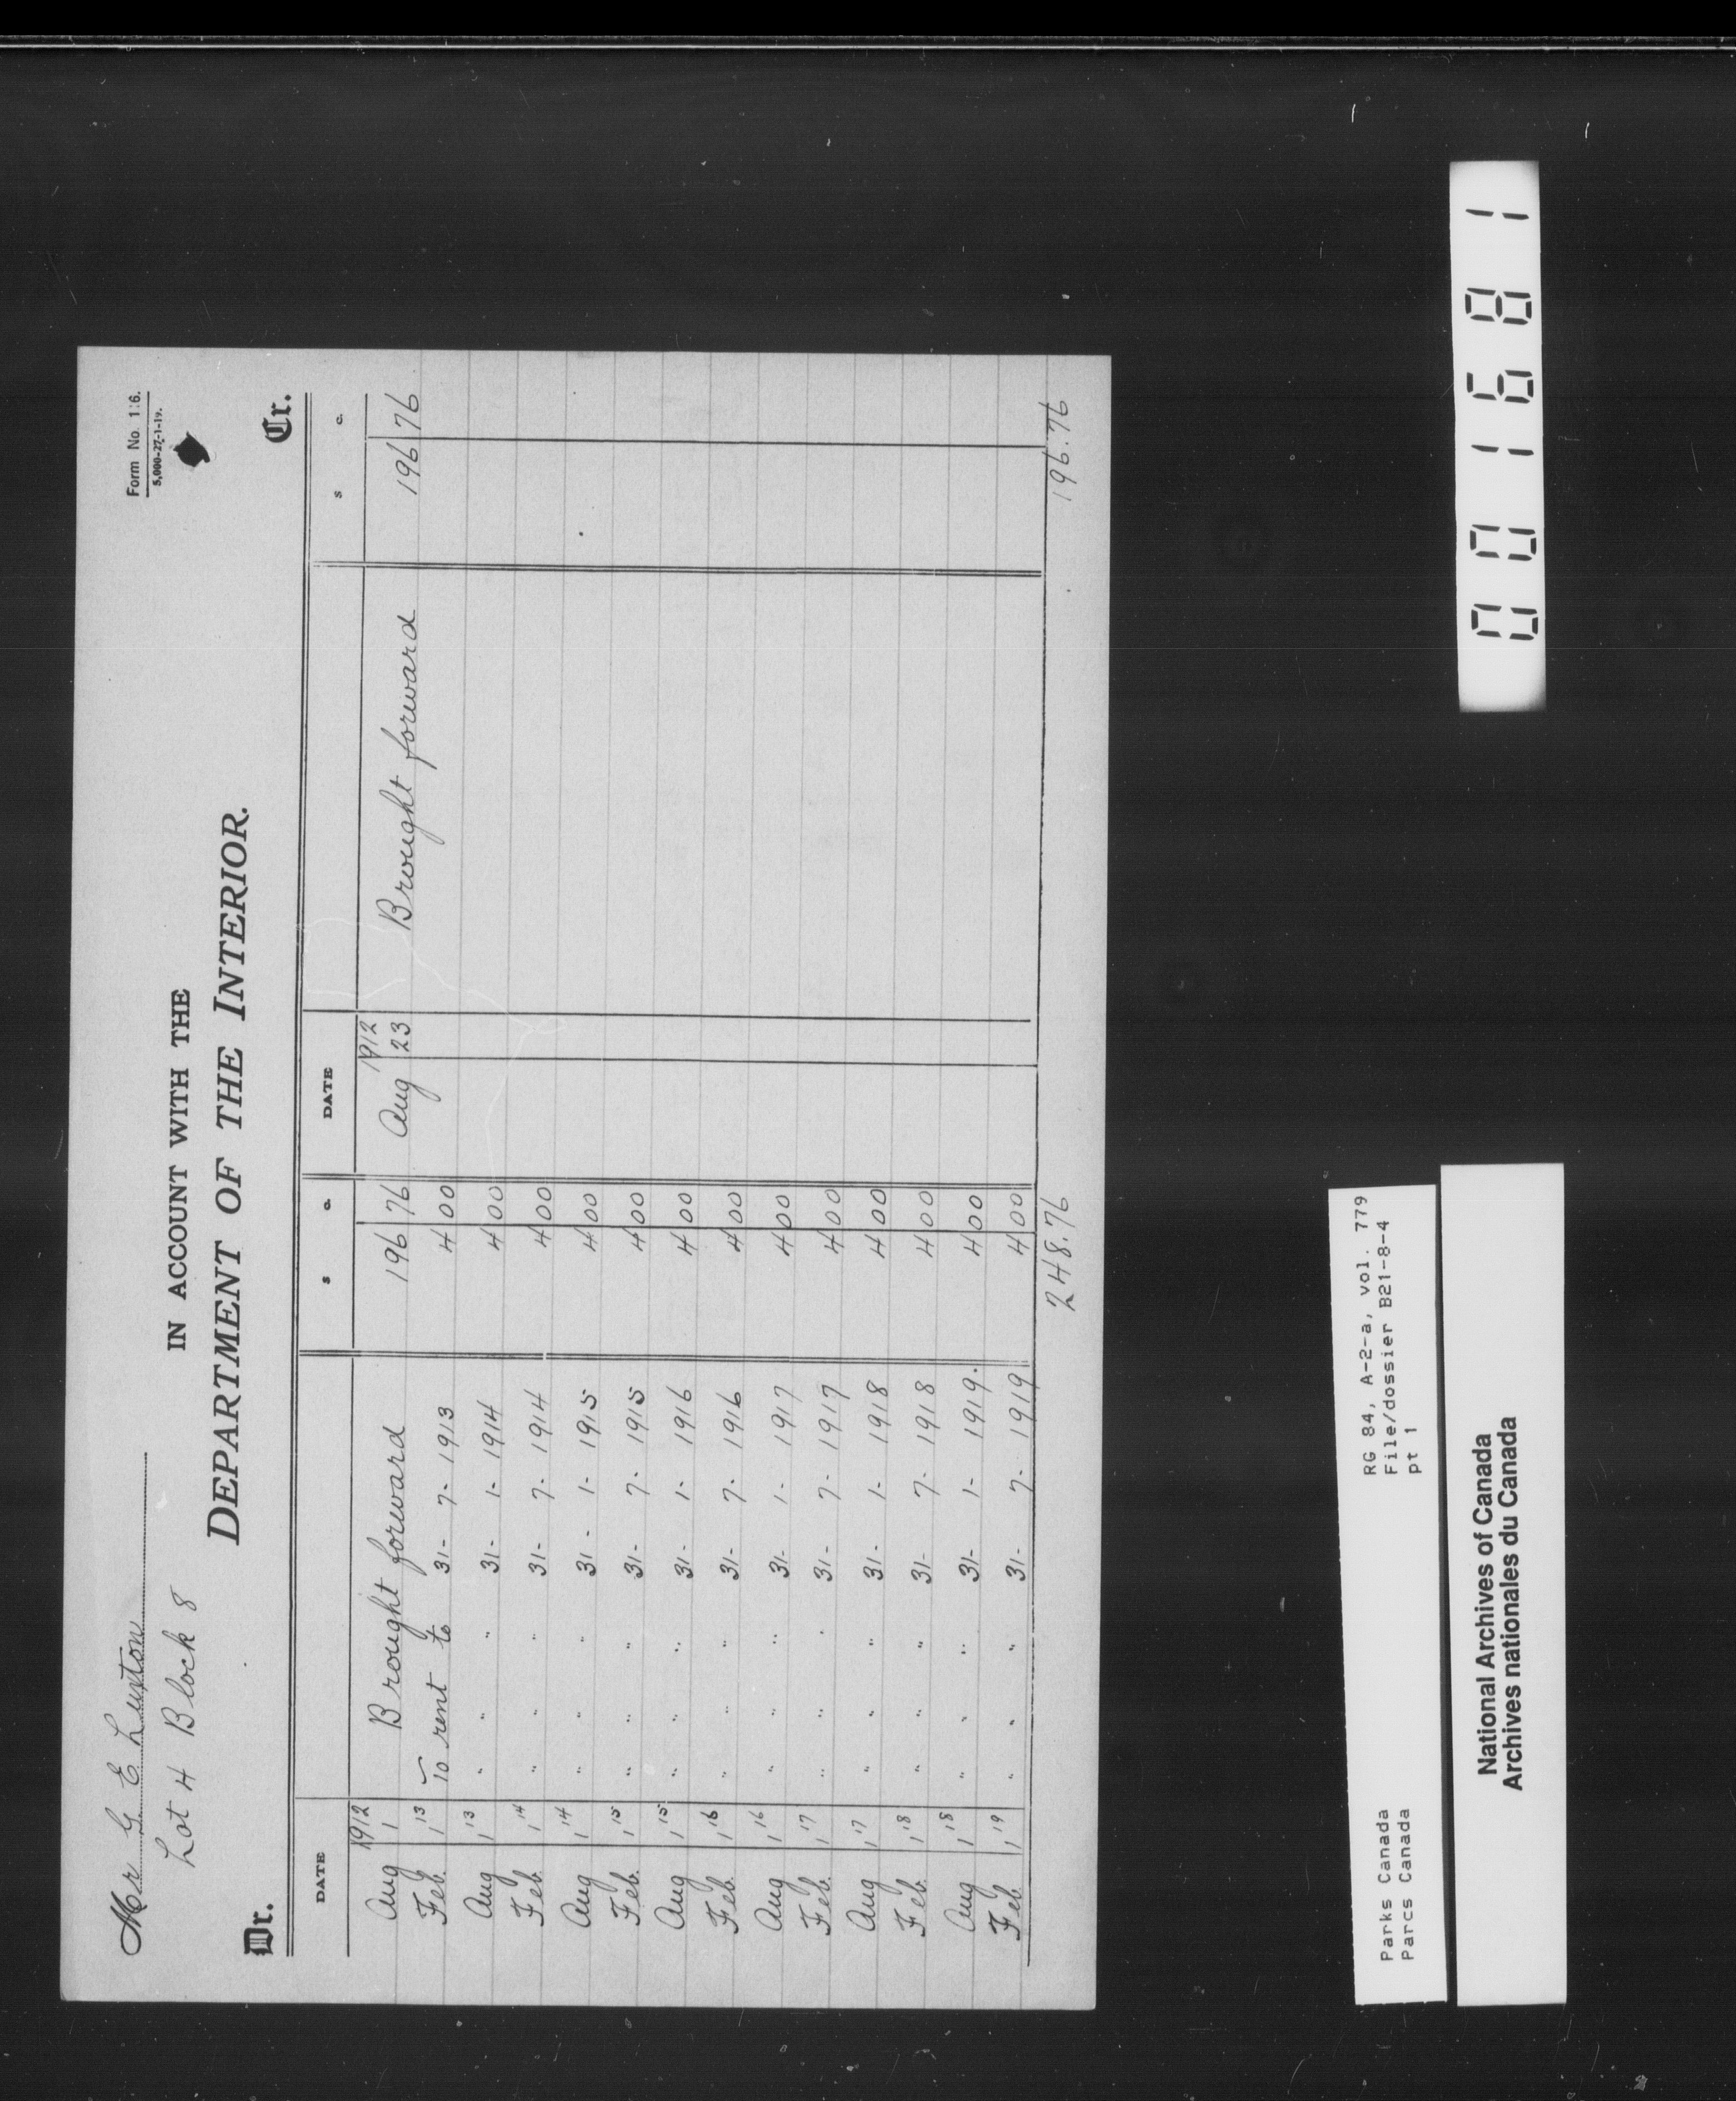 Form No. 1:6.
5,000-27-1-19.
Mr G. E. Luxton
Lot 4 Block 8
IN ACCOUNT WITH THE
DEPARTMENT OF THE INTERIOR.
Dr. Cr.
DATE $ c. DATE $ c.
1912 1912
Aug 1 Brought forward 196 76 Aug 23 Brought forward 196 76
Feb. 1 '13 To rent to 31- 7- 1913 4 00
Aug 1 '13 " " " 31- 1- 1914 4 00
Feb. 1 '14 " " " 31- 7- 1914 4 00
Aug 1 '14 " " " 31- 1- 1915 4 00
Feb. 1 '15 " " " 31- 7- 1915 4 00
Aug 1 '15 " " " 31- 1- 1916 4 00
Feb. 1 '16 " " " 31- 7- 1916 4 00
Aug 1 '16 " " " 31- 1- 1917 4 00
Feb. 1 '17 " " " 31- 7- 1917 4 00
Aug 1 '17 " " " 31- 1- 1918 4 00
Feb. 1 '18 " " " 31- 7- 1918 4 00
Aug 1 '18 " " " 31- 1- 1919. 4 00
Feb. 1 '19 " " " 31- 7- 1919 4 00
248.76 196.76
Parks Canada RG 84, A-2-a, vol. 779
Parcs Canada File/dossier B21-8-4
pt 1
National Archives of Canada
Archives nationales du Canada
001681